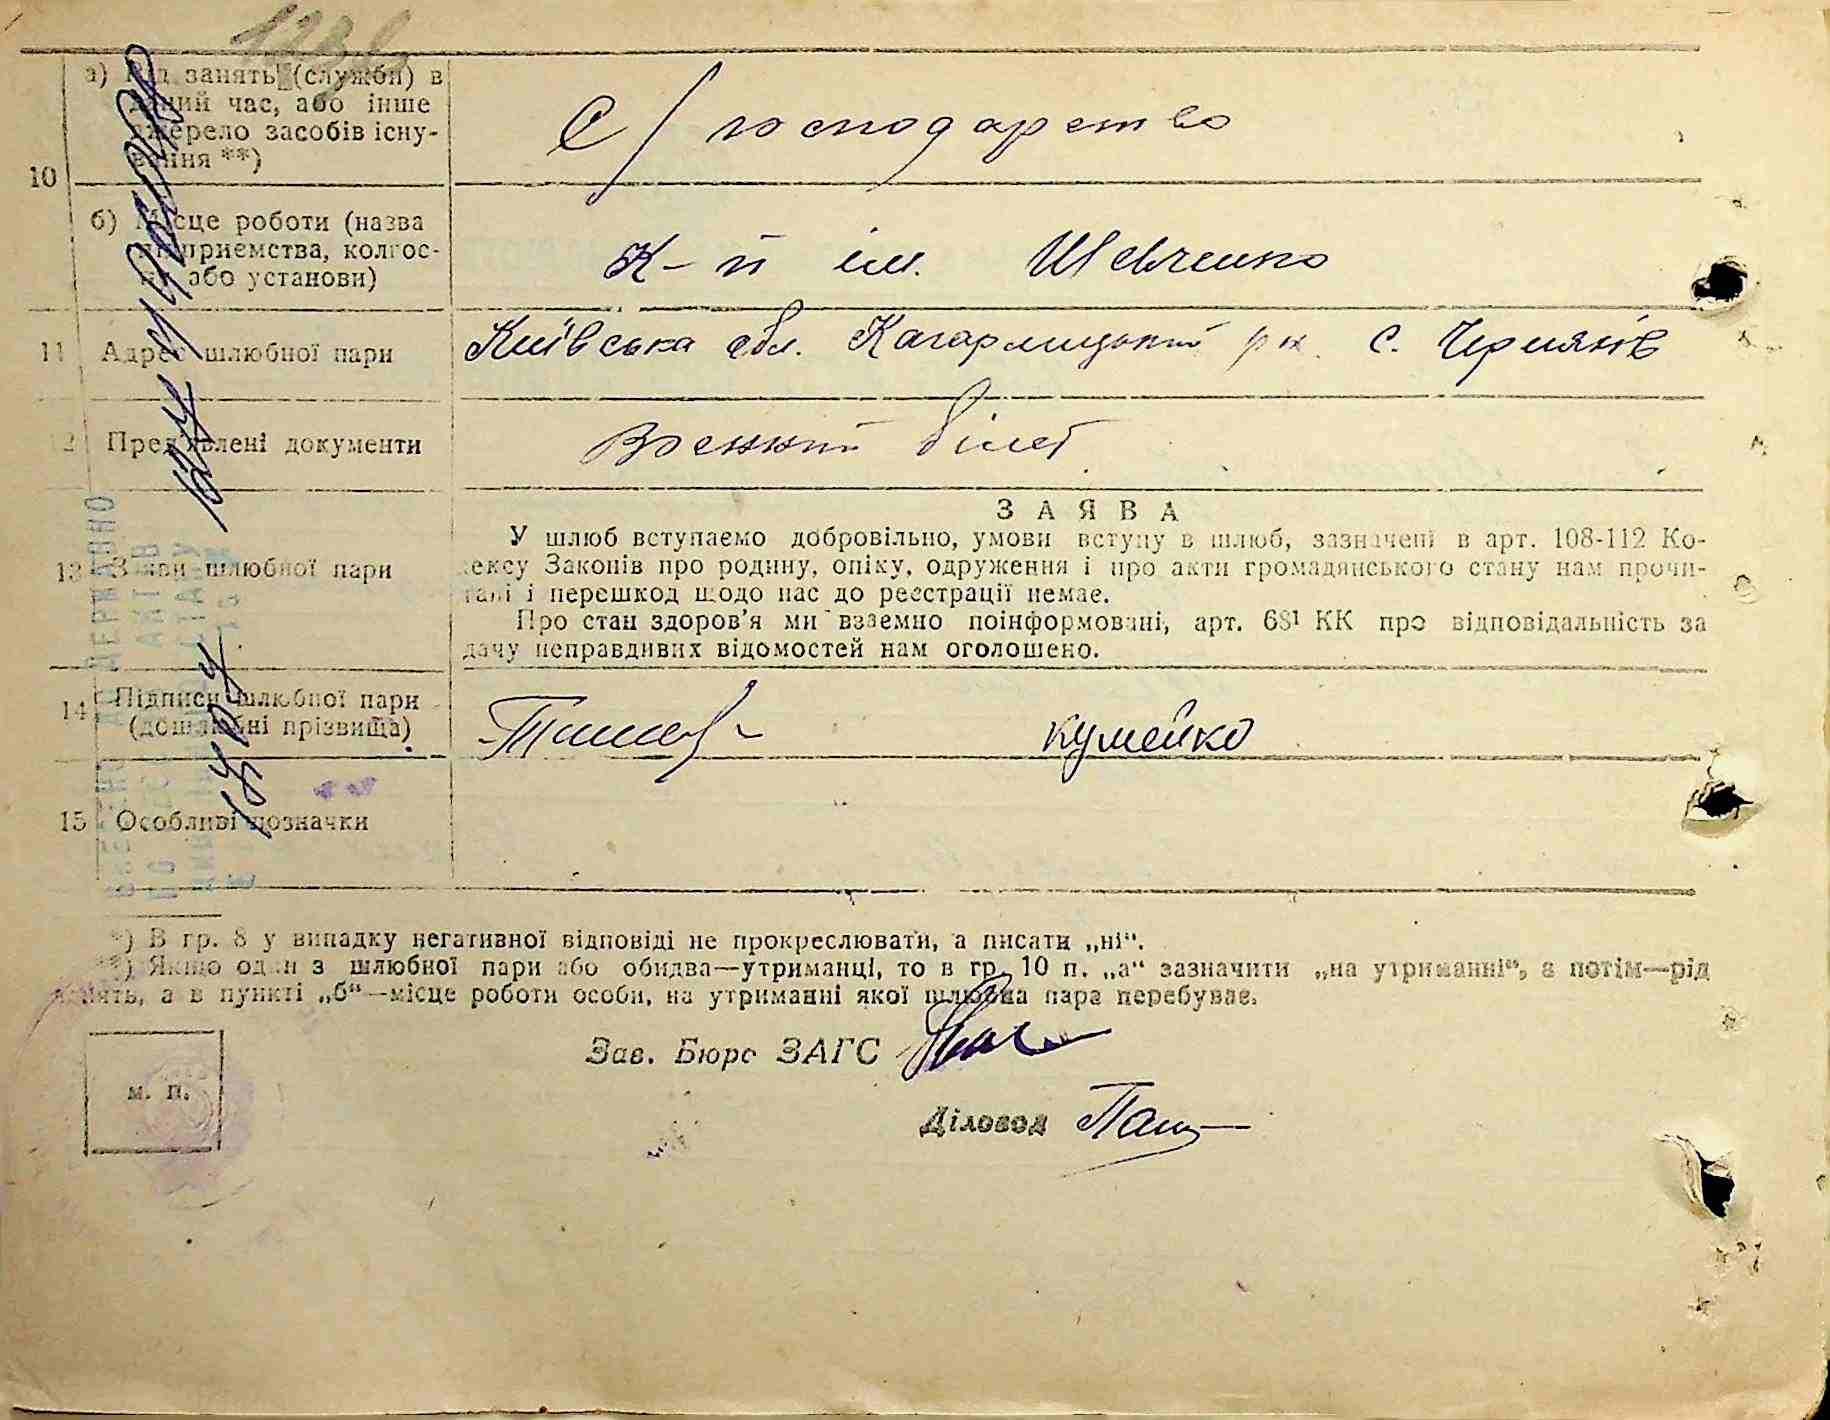 а) Рід занять (служби) в
даний час, або інше
джерело засобів існу-
вання **)
С/господарство
10
б) Місце роботи (назва
підприємства, колгос-
пу або установи)
К-п ім. Шевченко
11 Адрес шлюбної пари
Київська обл. Кагарлицький р-н с. Черняхів
12 Пред'явлені документи
Военний білет
13 Заяви шлюбної пари
ЗАЯВА
У шлюб вступаємо добровільно, умови вступу в шлюб, зазначені в арт. 108-112 Ко-
дексу Законів про родину, опіку, одруження і про акти громадянського стану нам прочи-
тані і перешкод щодо нас до реєстрації немає.
Про стан здоров'я ми взаємно поінформовані, арт. 68¹ КК про відповідальність за
дачу неправдивих відомостей нам оголошено.
14 Підписи шлюбної пари
(дошлюбні прізвища)
Кумейко
15 Особливі позначки
*) В гр. 8 у випадку негативної відповіді не прокреслювати, а писати „ні“.
**) Якщо один з шлюбної пари або обидва—утриманці, то в гр. 10 п. „а“ зазначити „на утриманні“, а потім—рід
занять, а в пункті „б“—місце роботи особи, на утриманні якої шлюбна пара перебуває.
Зав. Бюро ЗАГС
м. п.
Діловод